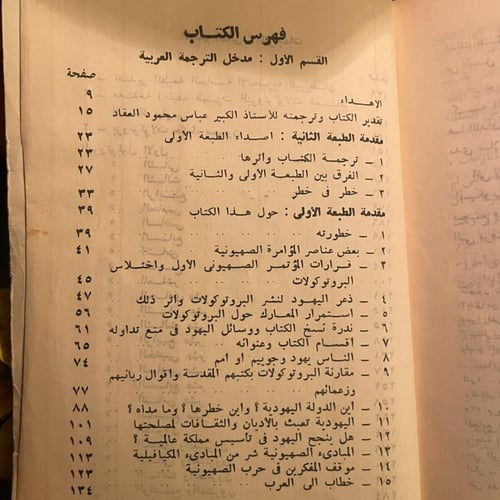 فهرس الكتاب
القسم الأول : مدخل الترجمة العربية
صفحة
الاهداء ٩
تقدير الكتاب وترجمته للأستاذ الكبير عباس محمود العقاد ١٥
مقدمة الطبعة الثانية : اصداء الطبعة الأولى ٢٣
١ ـ ترجمة الكتاب وأثرها ٢٣
٢ ـ الفرق بين الطبعة الأولى والثانية ٢٧
٣ ـ خطر فى خطر ٣٣
مقدمة الطبعة الأولى : حول هذا الكتاب ٣٩
١ ـ خطورته ٣٩
٢ ـ بعض عناصر المؤامرة الصهيونية ٤١
٣ ـ قرارات المؤتمر الصهيونى الأول واختلاس
البروتوكولات ٤٥
٤ ـ ذعر اليهود لنشر البروتوكولات واثر ذلك ٤٧
٥ ـ استمرار المعارك حول البروتوكولات ٥٦
٦ ـ ندرة نسخ الكتاب ووسائل اليهود فى منع تداوله ٦١
٧ ـ اقسام الكتاب وعنوانه ٦٥
٨ ـ الناس يهود وجوييم او امم ٧٤
٩ ـ مقارنة البروتوكولات بكتبهم المقدسة واقوال ربانيهم
وزعمائهم ٧٧
١٠ ـ أين الدولة اليهودية ؟ وأين خطرها ؟ وما مداه ؟ ٨٨
١١ ـ اليهودية تعبث بالأديان والثقافات لمصلحتها ١٠١
١٢ ـ هل ينجح اليهود فى تأسيس مملكة عالمية ؟ ١٠٩
١٣ ـ المبادىء الصهيونية شر من المبادىء الكيافيلية ١١٣
١٤ ـ موقف المفكرين فى حرب الصهيونية ١٢٣
١٥ ـ خطاب الى العرب ١٣٤